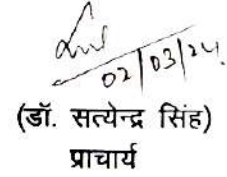 02/03/24
(डॉ. सत्येन्द्र सिंह)
प्राचार्य